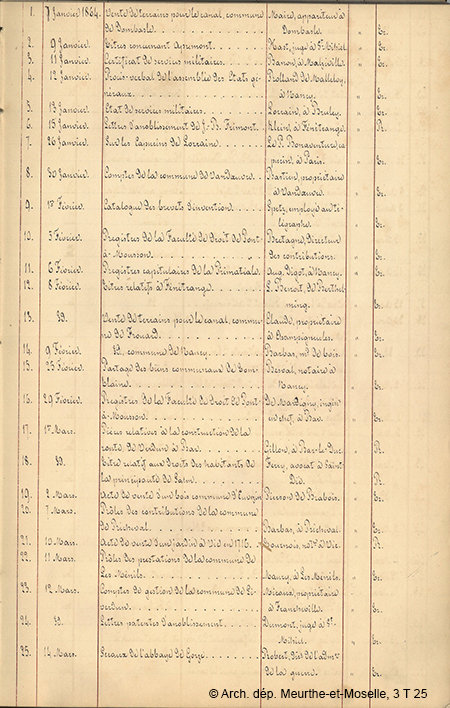 1. 7 Janvier 1864. Vente de terrains pour le canal, commune Maire, appariteur à
de Dombasle. Dombasle Er.
2. 9 Janvier. Titres concernant Apremont. Mast, juge à St Mihiel Er.
3. 11 Janvier. Certificat de services militaires. Banon, à Malzéville. Er.
4. 12 Janvier. Procès-verbal de l'assemblée des Etats gé- Rolland de Malleloy,
néraux. à Nancy. Er.
5. 13 Janvier. Etat de services militaires. Lorrain, à Bruley. Er.
6. 15 Janvier. Lettres d'anoblissement de J. B. Frimont. Klein, à Fénétrange. R.
7. 26 Janvier. Sur les Capucins de Lorraine. Le P. Bonaventure, ca
pucin, à Paris. Er.
8. 30 Janvier. Comptes de la commune de Vandœuvre. Bastien, propriétaire
à Vandœuvre. Er.
9. Février. Catalogue des brevets d'invention. employé au té-
légraphe. Er.
10. 5 Février. Registres de la Faculté de Droit de Pont- Bretagne, directeur
à-Mousson. des contributions. Er.
11. 6 Février. Registres capitulaires de la Primatiale. Aug. Digot, à Nancy. Er.
12. 8 Février. Titres relatifs à Fénétrange. L. Benoit, de Berthel
ming. Er.
13. D. Vente de terrains pour le canal, commu- Claude, propriétaire
ne de Frouard. à Champigneules. Er.
14. 9 Février. D., commune de Nancy. Barbas, md de bois. Er.
15. 25 Février. Partage des biens communaux de Dom- Besval, notaire à
blaine. Nancy. Er.
16. 29 Février. Registres de la Faculté de Droit de Pont- De ingén
à-Mousson. en chef, à Bar. Er.
17. 1er Mars. Pièces relatives à la construction de la
route de Verdun à Bar. Gillon, à Bar-le-Duc. R.
18. D. Titre relatif aux droits des habitants de Ferry, avocat à Saint
la principauté de Salm. Dié. R.
19. 2 Mars. Acte de vente d'un bois commune d' Pierson de Brabois. Er.
20. 7 Mars. Rôles des contributions de la commune
de Préchéval. Barbas, à Préchéval. Er.
21. 10 Mars. Acte de vente d'un jardin à Vic en 1716. notre à Vic. R.
22. 11 Mars. Rôles des prestations de la commune de
Les Ménils. Mancy, à Les Ménils. Er.
23. 12 Mars. Comptes de gestion de la commune de Li- propriétaire
verdun. à Francheville. Er.
24. D. Lettres patentes d'anoblissement. Dumont, juge à St-
Mihiel. Er.
25. 14 Mars. Sceaux de l'abbaye de Gorze. Robert, de l'admon
de la guerre. Er.
© Arch. dép. Meurthe-et-Moselle, 3 T 25